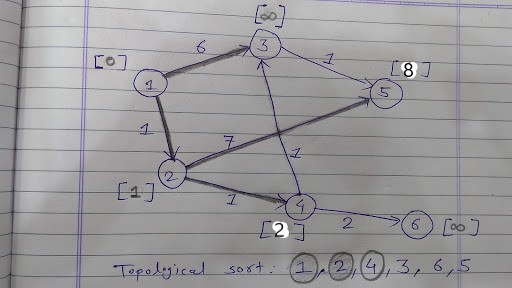 [∞]
6
3
1
[0]
[8]
1
5
1
7
2
1
[1]
1
4
2
6
[∞]
[2]
Topological sort: 1, 2, 4, 3, 6, 5